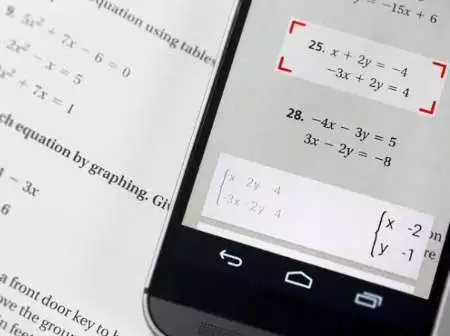 quation using tables
9. 5x² + 7x − 6 = 0
2x² − x = 5
x² + 7x = 1
ch equation by graphing. Gi
− 3x
6
a front door key to
ove the groun
n feet
= −15x + 6
25. x + 2y = −4
−3x + 2y = 4
28. −4x − 3y = 5
3x − 2y = −8
{x 2y 4
−3x 2y 4
{x -2
y -1
on
re